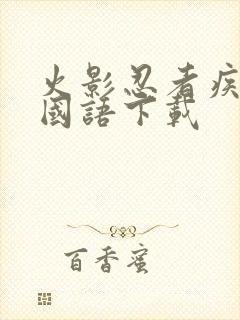 火影忍者疾
國語下載
百香蜜